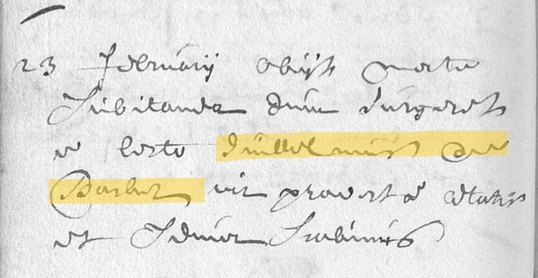 23 february obijt morte
subitanea dum surgeret
e lecto Guillelmus de
Backer vir provectæ ætatis
et